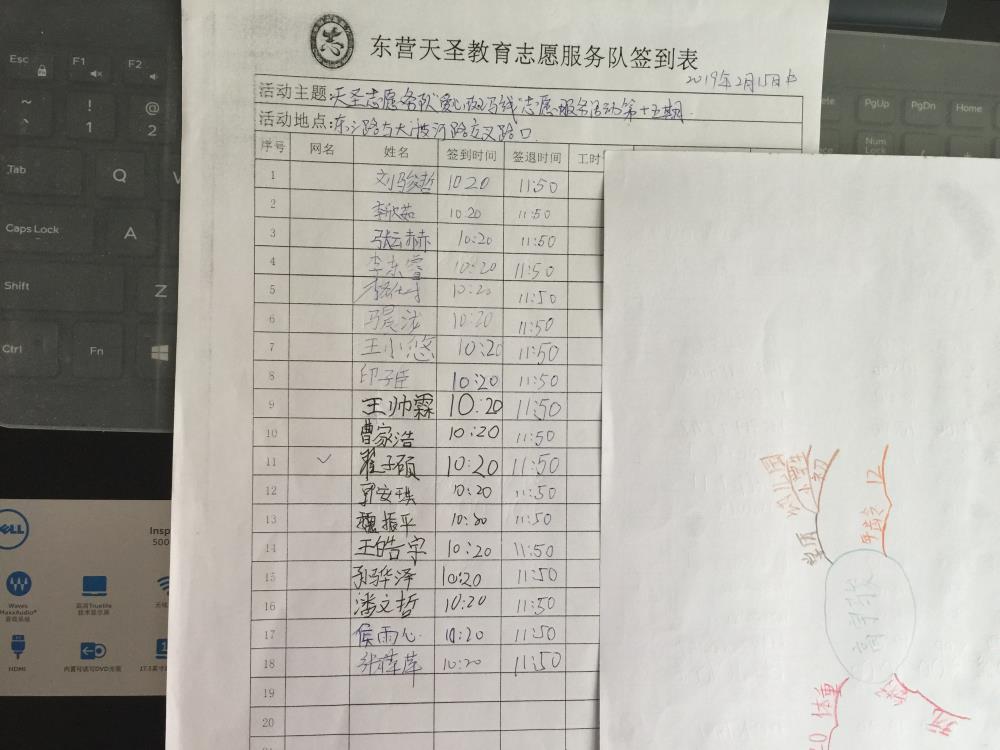 东营天圣教育志愿服务队签到表
2019年2月15日
活动主题:天圣志愿务队爱心斑马线志愿服务活动第十五期
活动地点:东三路与大渡河路交叉路口
序号 网名 姓名 签到时间 签退时间 工时
1 刘骏哲 10:20 11:50
2 李欣茹 10:20 11:50
3 张云赫 10:20 11:50
4 李东萱 10:20 11:50
5 10:20 11:50
6 马晨 10:20 11:50
7 王小悠 10:20 11:50
8 印子臣 10:20 11:50
9 王帅霖 10:20 11:50
10 曹家浩 10:20 11:50
11 ✓ 翟子硕 10:20 11:50
12 郭安琪 10:20 11:50
13 魏振平 10:20 11:50
14 王皓宇 10:20 11:50
15 孙华泽 10:20 11:50
16 潘文哲 10:20 11:50
17 侯雨心 10:20 11:50
18 张萍萍 10:20 11:50
19
20
Esc
F1
F2
~
!
1
@
2
Tab
Q
Caps Lock
A
Shift
Z
Ctrl
Fn
PgUp
PgDn
Home
Num
Lock
DELL
Insp
500
Waves
MaxxAudio®
音效系统
高清Truelife
技术显示屏
HDMI
内置可读写DVD光驱
幼儿园
小初
学历
年龄 12
体重